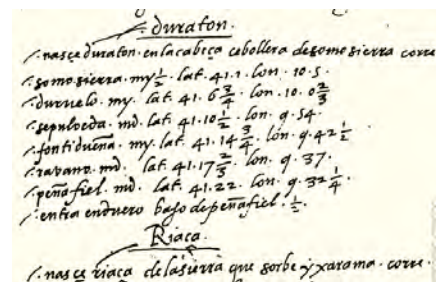 duraton.
/. nasçe duraton. en la cabeça cebollera de somo sierra corre
/. somo sierra. my ½. lat. 41.1. lon. 10.5.
/. duruelo. my. lat. 41.6 ¾. lon. 10.0 ⅔
/. sepuloeda. md. lat. 41.10 ½. lon. 9.54.
/. fontidueña. my. lat. 41.14 ¾. lon. 9.42 ½
/. ravano. md. lat. 41.17 ⅔. lon. 9.37.
/. peñafiel. md. lat. 41.22. lon. 9.32 ¼.
/. entra en duero baxo de peñafiel. ½.
Riaça.
/. nasçe riaça de la sierra que sorbe y xarama. corre.